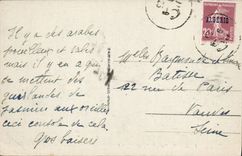 Il y a des arabes
pouilleux et sales
mais il y en a qui
se mettent des
guirlandes de
jasmins aux oreilles
ceci console de cela.
Gros baisers
ALGÉRIE
Melles Raymonde et
Batisse
22 rue de Paris
Vanves
Seine